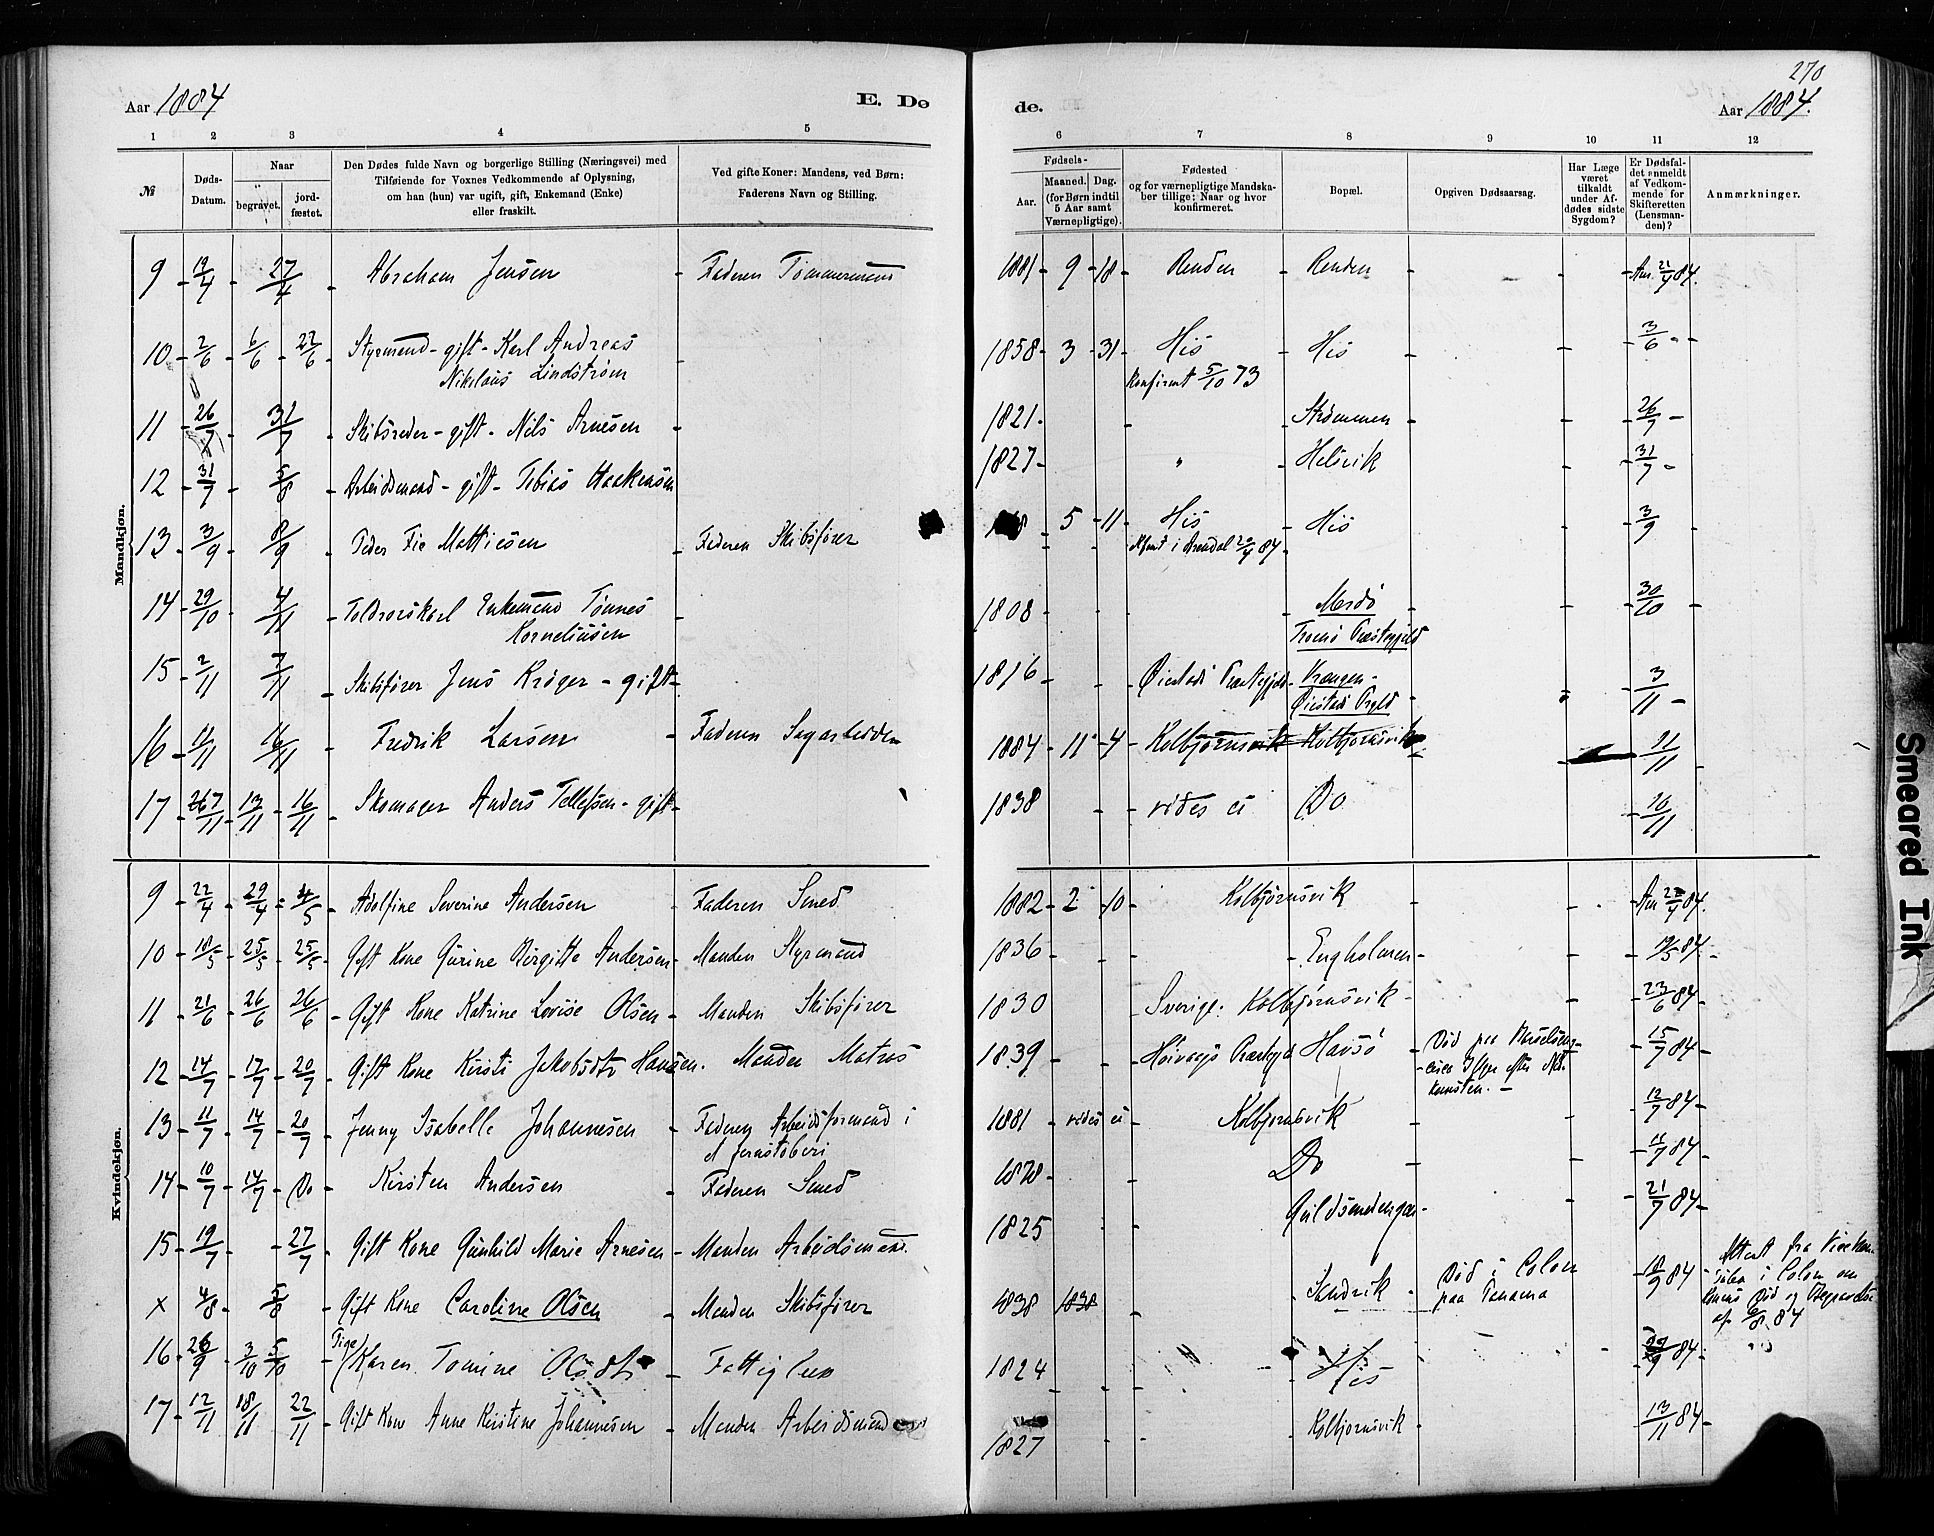 270
Aar 1884
E. Dø
de.
Aar 1884.
1 2 3 4 5 6 7 8 9 10 11 12
№
Døds-
Datum.
Naar
begravet.
jord-
fæstet.
Den Dødes fulde Navn og borgerlige Stilling (Næringsvei) med
Tilføiende for Voxnes Vedkommende af Oplysning,
om han (hun) var ugift, gift, Enkemand (Enke)
eller fraskilt.
Ved gifte Koner: Mandens, ved Børn:
Faderens Navn og Stilling.
Fødsels-
Aar.
Maaned. Dag.
(for Børn indtil
5 Aar samt
Værnepligtige).
Fødested
og for værnepligtige Mandska-
ber tillige: Naar og hvor
konfirmeret.
Bopæl.
Opgiven Dødsaarsag.
Har Læge
været
tilkaldt
under Af-
dødes sidste
Sygdom?
Er Dødsfal-
det anmeldt
af Vedkom-
mende for
Skifteretten
(Lensman-
den)?
Anmærkninger.
Mandkjøn.
9 19/4 27/4 Abraham Jensen Faderen Tømmermand 1881 9 18 Renden Renden Anm. 21/4 84.
10 2/6 6/6 22/6 Styrmand - gift - Karl Andreas 1858 3 31 His His 3/6
Nikolaus Lindstrøm Konfirmt 5/10 73
11 26/7 31/7 Skibsreder - gift - Nils Arnesen 1821 Strømmen 26/7
12 31/7 5/8 Arbeidsmand - gift - Tobias Haakensen 1827 " Helsvik 31/7
13 3/9 8/9 Peder Fie Mathiesen Faderen Skibsfører 5 11 His His 3/9
i Arendal 20/4 84
14 29/10 4/11 Enkemand Tønnes 1808 Merdø 30/10
Korneliusen Tromø Præstegjeld
15 2/11 7/11 Skibsfører Jens Krøger - gift 1816 Øiestads Præstegjeld 3/11
Øiestads Prgld
16 11/11 16/11 Fredrik Larsen Faderen Sagarbeider 1884 11 4 Kolbjørnsvik Kolbjørnsvik 11/11
17 13/11 16/11 Skomager Anders Tellefsen - gift 1838 vides ei Do 16/11
Kvindekjøn.
9 22/4 29/4 4/5 Adolfine Severine Andersen Faderen Smed 1882 2 10 Kolbjørnsvik Anm 84.
10 18/5 25/5 25/5 Gift Kone Gurine Birgitte Andersen Manden Styrmand 1836 Engholmen 19/5 84.
11 21/6 26/6 26/6 Gift Kone Katrine Lovise Olsen Manden Skibsfører 1830 Sverige. Kolbjørnsvik 23/6 84
12 14/7 17/7 20/7 Gift Kone Kirsti Jakobsdtr Hansen. Manden Matros 1839 Høivaags Præstegjd Havsø Død paa Barselseng 15/7 84
13 11/7 14/7 20/7 Jenny Isabelle Johannesen Faderen Arbeidsformand i 1881 vides ei Kolbjørnsvik 12/7 84
et Jernstøberi
14 10/7 14/7 Do Kirsten Andersen Faderen Smed 1878 Do 11/7 84
15 19/7 27/7 Gift Kone Gunhild Marie Arnesen Manden Arbeidsmand. 1825 Guldsmedengen 21/7 84
x 4/8 5/8 Gift Kone Caroline Olsen Manden Skibsfører 1838 1838 Sandvik Død i Colon 18/9 84 Attest fra Vicekon-
paa Panama sulen i Colon om
Konens Død og Begravelse
af 6/8 84
16 26/9 3/10 5/10 Pige Karen Tomine Olsdtr Fattiglem 1824 His 84
17 12/11 18/11 22/11 Gift Kone Anne Kirstine Johannesen Manden Arbeidsmand 1827 Kolbjørnsvik 13/11 84
Smeared Ink